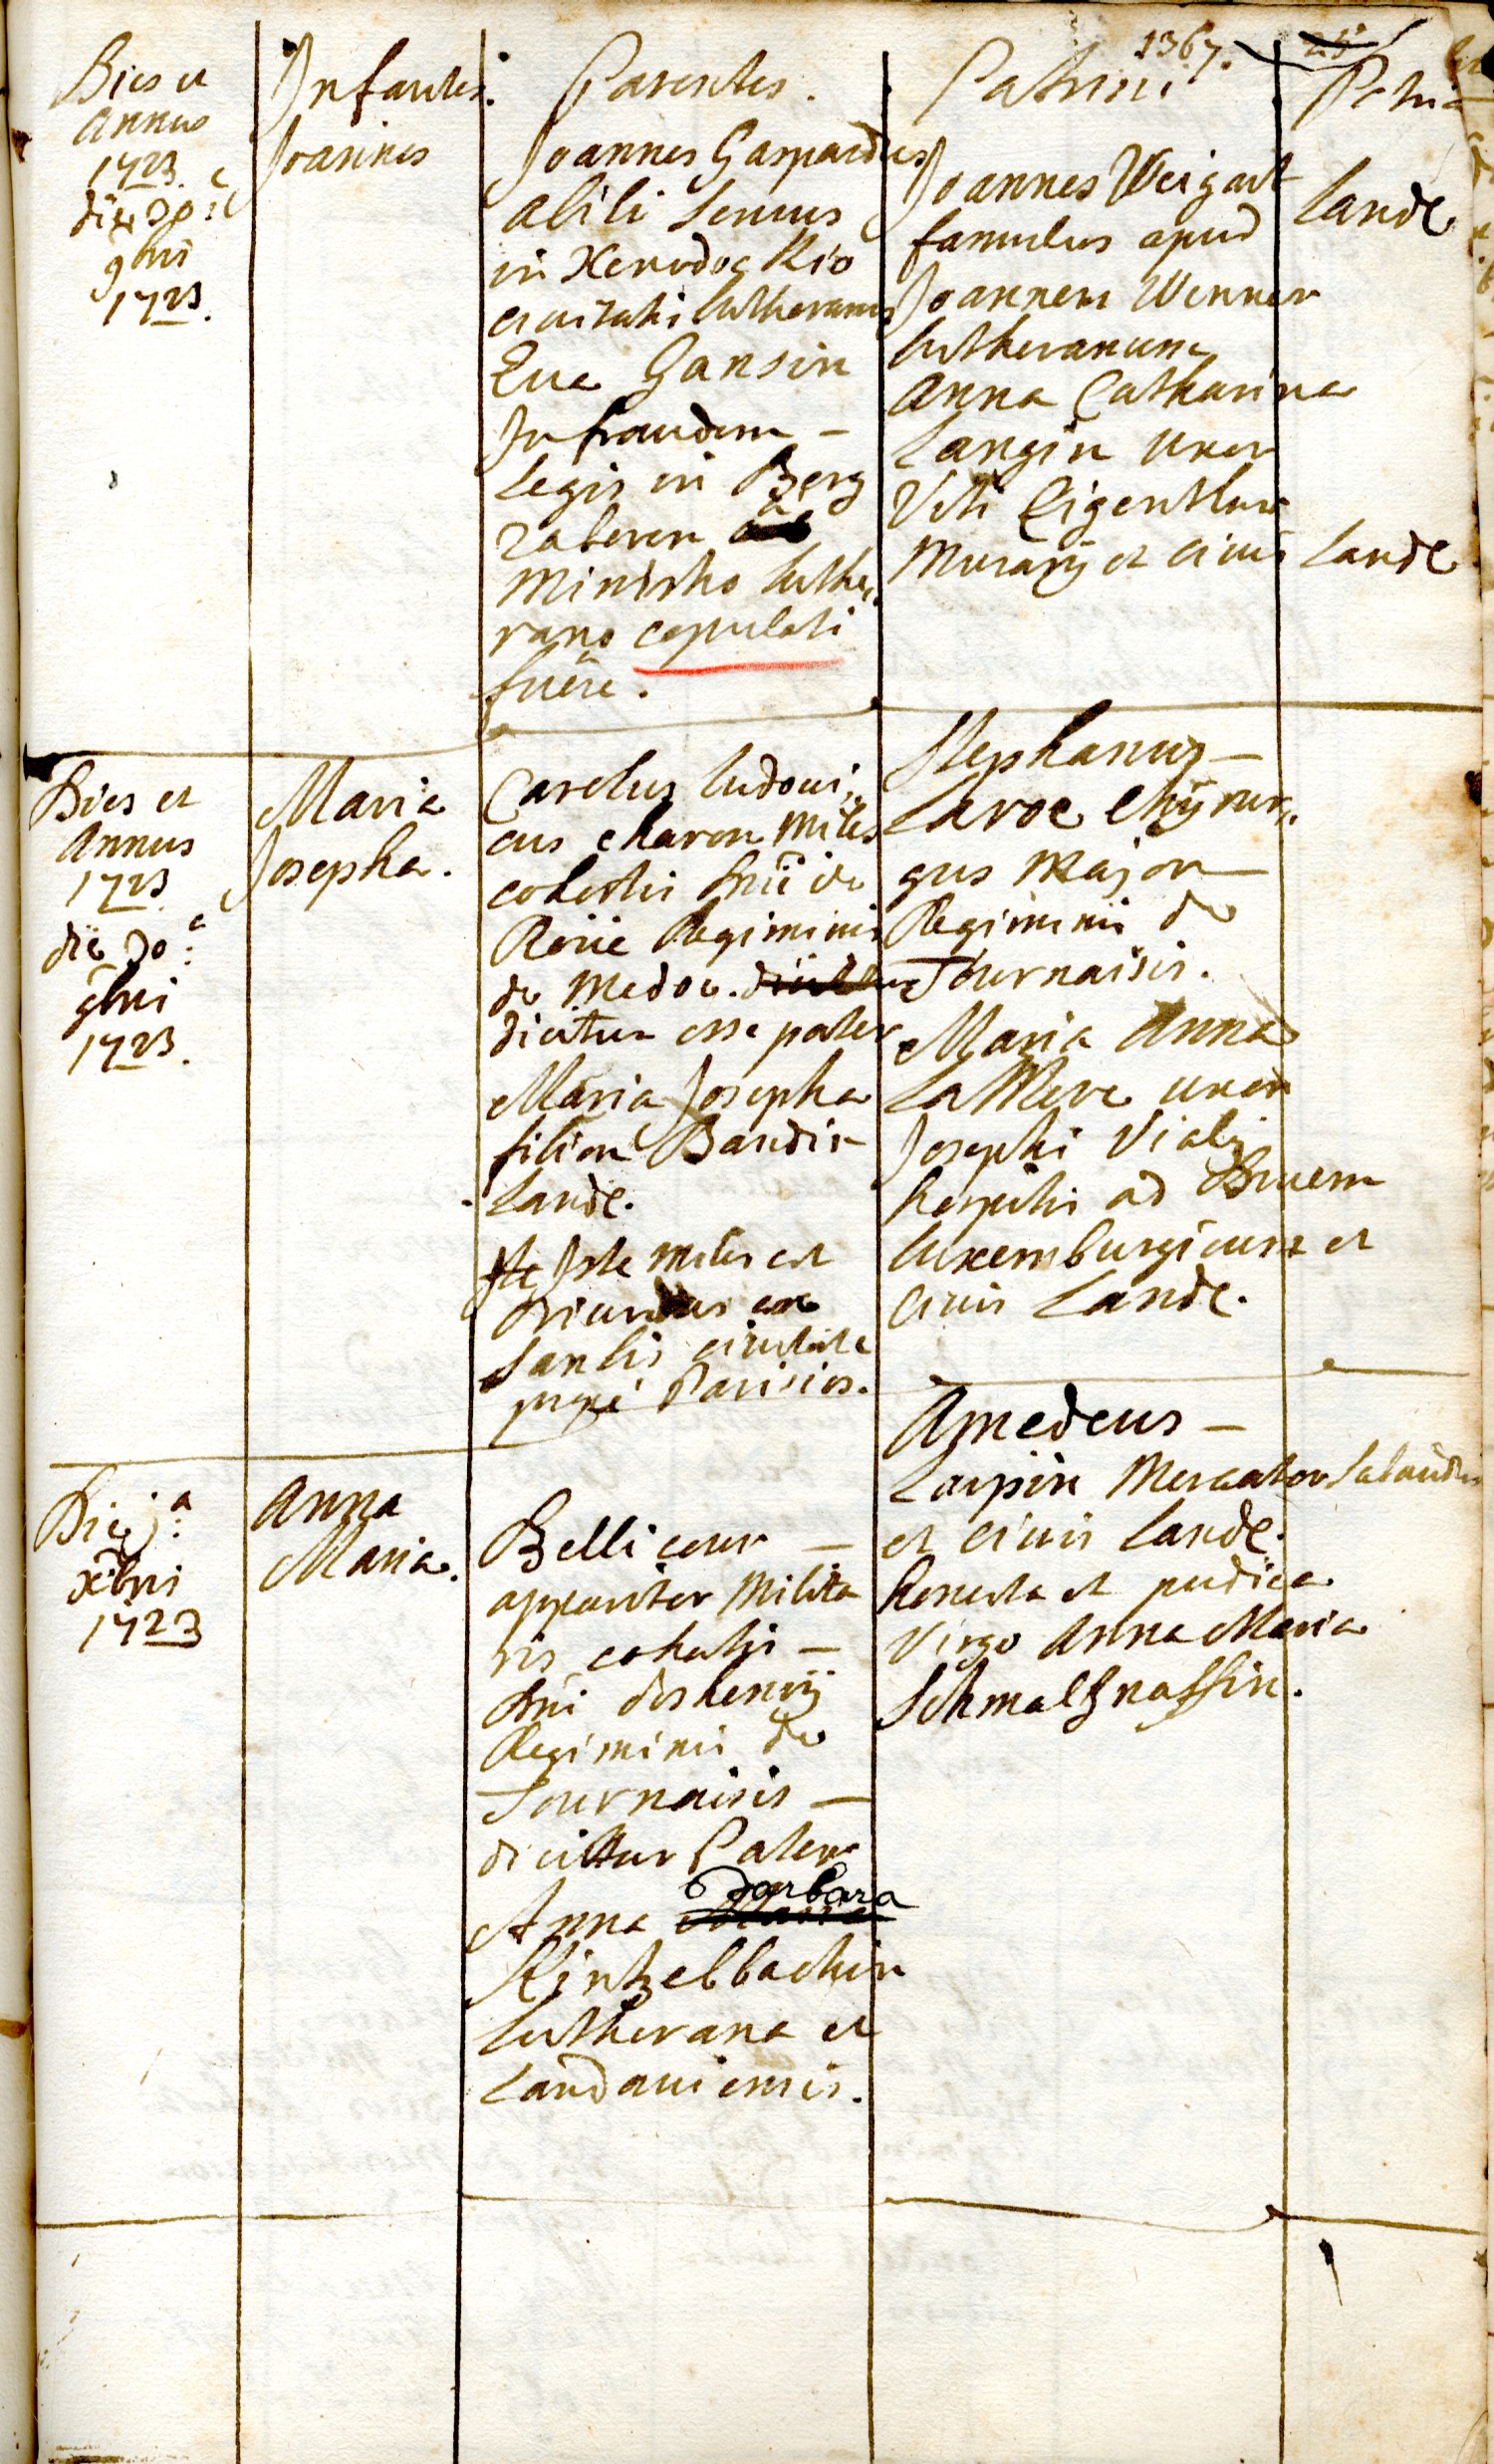 1367.
Dies et
Annus
1723.
die 30:
9bris
1723.
Infantes.
Joannes
Parentes.
Joannes Gaspardus
abili
in
civitatis Lutheranus
Eva Gansin
In fraudem –
legis in Berg
zaberen a
Ministro Luthe,,
rano copulati
fuêre.
Patrini
Joannes Weigart
famulus apud
Joannem Wenner
Lutheranum
Anna Catharina
Langin uxor
Viti Eigenthur
Murarij et civis
Patria
Landæ
Landæ
Dies et
Annus
1723
die 30:
9bris
1723.
Maria
Josepha.
Carolus Ludovi,,
cus charon Miles
cohortis Dnii de
Regiminis
de Medoc.
dicitur esse pater
Maria Josepha
filion Baudin
Landæ.
Iste Miles est
oriundus ex
Sanlis civitate
propé Parisios.
Stephanus –
Laroe Chyrur,,
gus Major
Regiminis de
Tournaisis.
Maria Anna
La Mere uxor
Josephi Vialis
hospitis ad
Luxemburgicum et
civis Landæ.
Die j:a
xbris
1723
Anna
Maria.
Bellicour –
apparitor Milita
ris cohortis –
Dni deshenrij
Regiminis de
Tournaisis –
dicitur Pater
Barbara
Anna Maria
Kintzelbachin
Lutherana et
Landaviensis.
Amedeus –
Laupin Mercator
et civis Landæ.
honesta et pudica
Virgo Anna Maria
Schmaltznassin.
Sabaudus